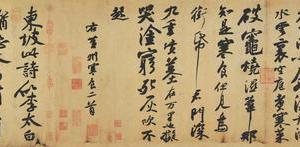 水雲裏空庖煮寒菜
破竈燒濕葦那
知是寒食但見烏
銜帋君門深
九重墳墓在万里也擬
哭塗窮死灰吹不
起
右黃州寒食二首
東坡此詩似李太白